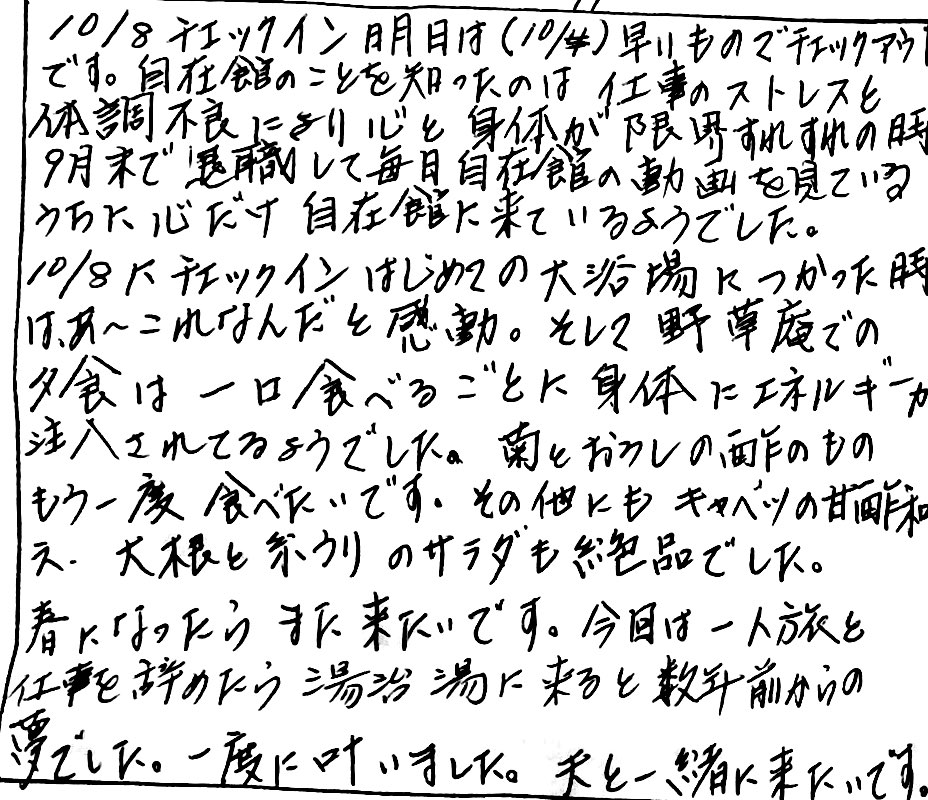 10/8 チェックイン 明日は(10/ )早いものでチェックアウト
です。自在館のことを知ったのは 仕事のストレスと
体調不良により心と身体が限界すれすれの時
9月末で退職して毎日自在館の動画を見ている
うちに心だけ自在館に来ているようでした。
10/8にチェックインはじめての大浴場につかった時
は、あ〜これなんだと感動。そして野草庵での
夕食は一口食べるごとに身体にエネルギーが
注入されてるようでした。菊とおろしの酢のもの
もう一度食べたいです。その他にもキャベツの甘酢和
え.大根と糸ウリのサラダも絶品でした。
春になったらまた来たいです。今回は一人旅と
仕事を辞めたら湯治湯に来ると数年前からの
夢でした。一度に叶いました。夫と一緒に来たいです。